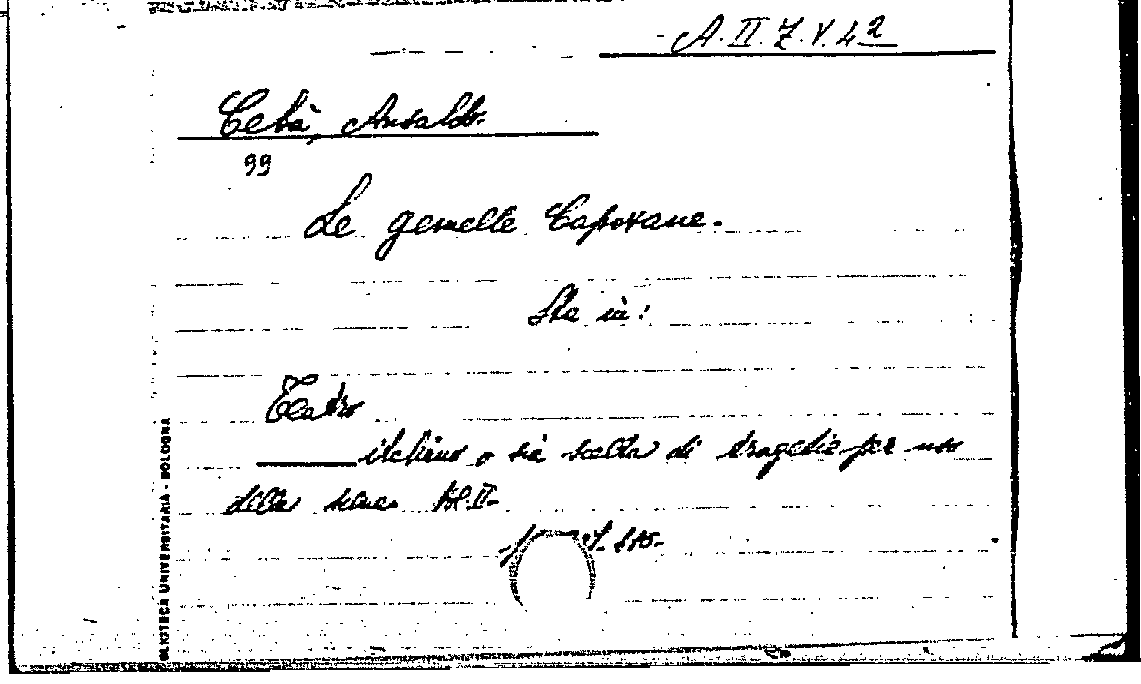 A. II. Z. V. 42
Cebà, Ansaldo.
99
Le gemelle Capovane.
Sta in:
Teatro
italiano o sia scelta di tragedie per uso
della scena. Vol. II.
BLIOTECA UNIVERSITARIA - BOLOGNA